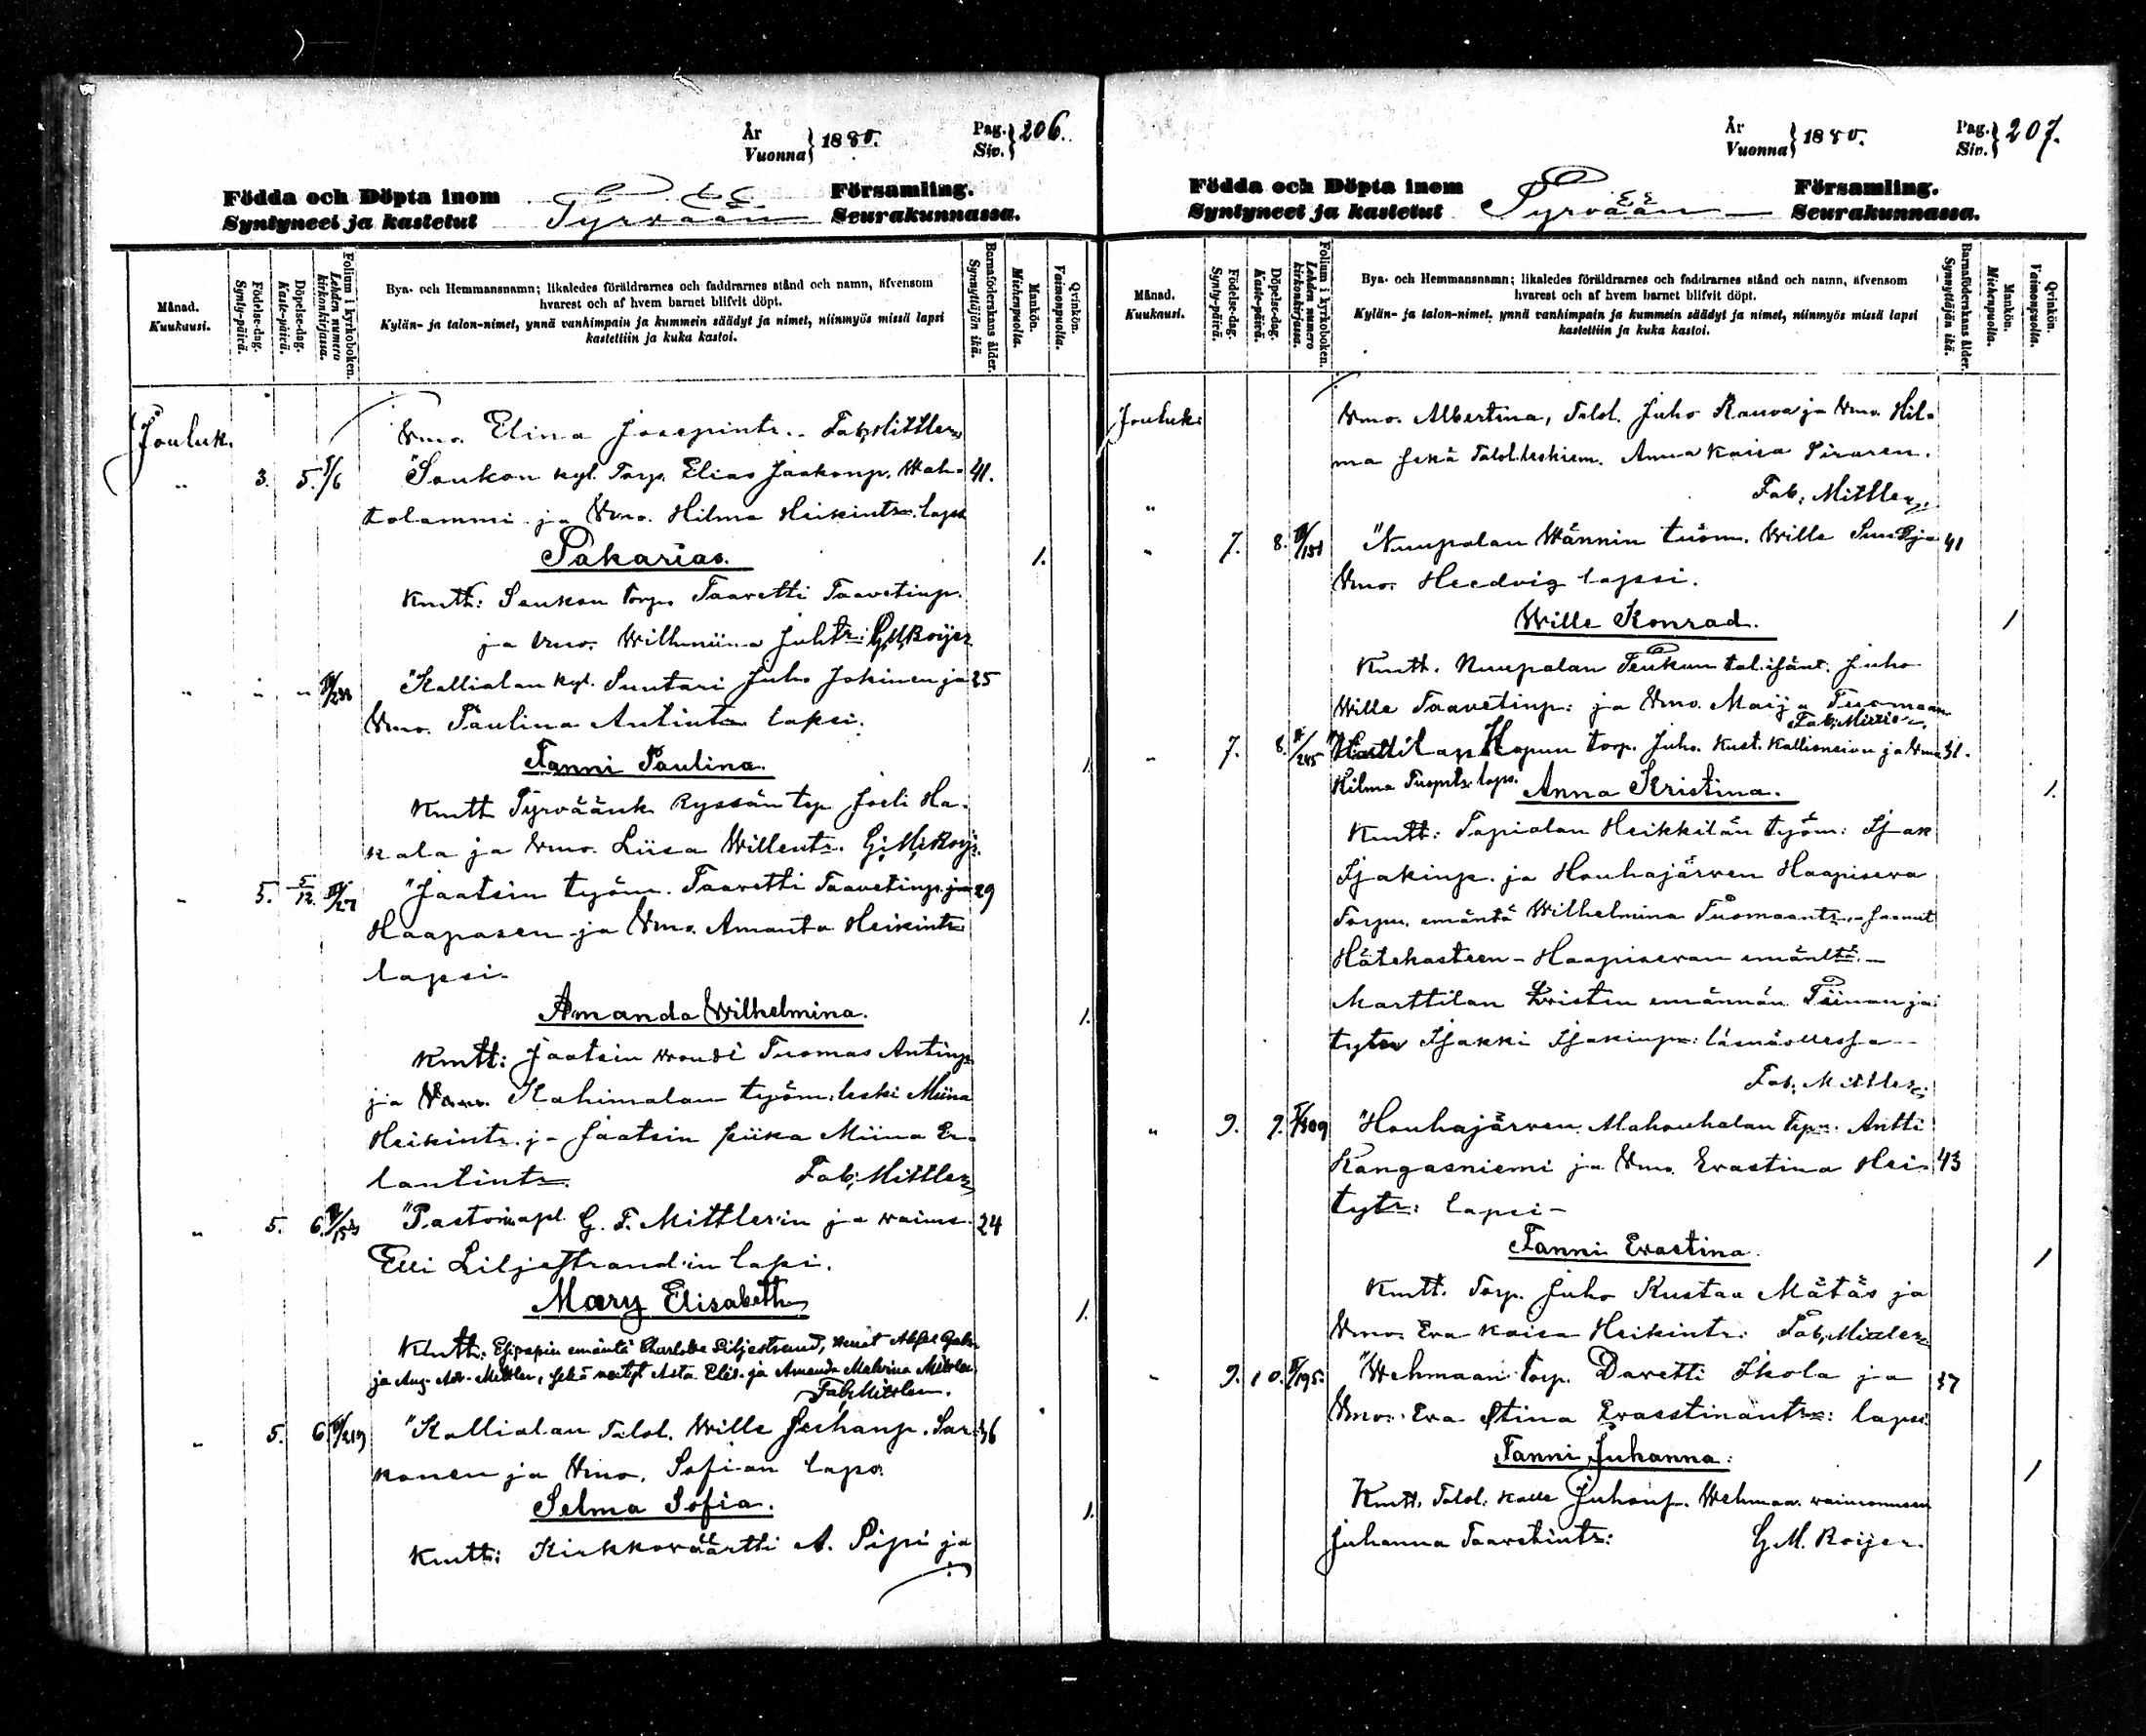 År
Vuonna } 1880.
Pag.
Siv. } 206.
Födda och Döpta inom
Syntyneet ja kastetut
Tyrvään
Församling.
Seurakunnassa.
Månad.
Kuukausi.
Födelse-dag.
Synty-päivä.
Döpelse-dag.
Kaste-päivä.
Folium i kyrkoboken.
Lehden numero kirkonkirjassa.
Bya- och Hemmansnamn; likaledes föräldrarnes och faddrarnes stånd och namn, äfvensom
hvarest och af hvem barnet blifvit döpt.
Kylän- ja talon-nimet, ynnä vanhimpain ja kummein säädyt ja nimet, niinmyös missä lapsi
kastettiin ja kuka kastoi.
Barnaföderskans ålder.
Synnyttäjän ikä.
Mankön.
Miehenpuolia.
Qvinkön.
Vaimonpuolia.
Jouluk. Vmo. Elina Josepintr. Fab. Mittler
" 3. 5. Soukon kyl. Torp. Elias Jaakonp. Wah- 41.
tolammi ja Vmo. Hilma Heikintr. lapsi
Sakarias. 1.
Kmtt: Soukon torp. Taavetti Taavetinp.
ja Vmo. Wilhmiina Juhtr: G. M. Roijer
" " " "Kallialan kyl. Suutari Juho Jokinen ja 25
Vmo. Paulina Antintr. lapsi.
Fanni Paulina. 1.
Kmtt Tyrväänk. Ryssän trp. Joeli Ha-
kala ja Vmo. Liisa Willentr. G. M. Roijr.
" 5. 5/12. "Jaatsin työm. Taavetti Taavetinp. ja 29
Haapasen ja Vmo. Amanta Heikintr.
lapsi.
Amanda Wilhelmina. 1.
Kmtt: Jaatsin vouti Tuomas Antinp.
ja Kahimalan työm. leski Miina
Heikintr. ja Jaatsin piika Miina Er-
lantintr. Fab. Mittler
" 5. 6. "Pastorinapl. G. F. Mittler'in ja vaims. 24
Elli Liljestrand'in lapsi.
Mary Elisabeth 1.
Kmtt: emäntä Charlotte Liljestrand,
ja Aug. Mittler, sekä neityt Asta Elis. ja Amanda Malvina Mittler.
Fab. Mittler.
" 5. 6. IV/219 "Kallialan Talol. Wille Juhanp. Sar- 36
konen ja Vmo. Sofian laps.
Selma Sofia. 1.
Kmtt: Kirkkoväärtti A. Pipi ja
År
Vuonna } 1880.
Pag.
Siv. } 207.
Födda och Döpta inom
Syntyneet ja kastetut
Tyrvään
Församling.
Seurakunnassa.
Månad.
Kuukausi.
Födelse-dag.
Synty-päivä.
Döpelse-dag.
Kaste-päivä.
Folium i kyrkoboken.
Lehden numero kirkonkirjassa.
Bya- och Hemmansnamn; likaledes föräldrarnes och faddrarnes stånd och namn, äfvensom
hvarest och af hvem barnet blifvit döpt.
Kylän- ja talon-nimet, ynnä vanhimpain ja kummein säädyt ja nimet, niinmyös missä lapsi
kastettiin ja kuka kastoi.
Barnaföderskans ålder.
Synnyttäjän ikä.
Mankön.
Miehenpuolia.
Qvinkön.
Vaimonpuolia.
Jouluk: Vmo. Albertina, Talol. Juho Rauva ja Vmo. Hil-
ma sekä Talol. leskiem. Anna Kaisa
" Fab. Mittler.
" 7. 8. "Nuupalan Männin työm. Wille ja 41
Vmo. Hedvig lapsi.
Wille Konrad. 1
Kmtt. Nuupalan Teukun tal. isänt. Juho
Wille Taavetinp: ja Vmo. Maija Tuomaan
Fab. Mittler.
" 7. 8. torp. Juho Kust. Kallionsivu ja Vmo 31.
Hilma laps. Anna Kristina. 1.
Kmtt: Tapiolan Heikkilän työm: Isak
Isakinp. ja Houhajärven Haapiseva
Torpn. emäntä Wilhelmina Tuomaantr. saanut
Hätäkasteen - Haapisevan emänltä. -
Marttilan emännän Tiinan ja
Isakki Isakinp: läsnäollessa -
Fab. Mittler.
" 9. 9. "Houhajärven Mahouhalan Tpn. Antti
Kangasniemi ja Vmo. Evastina Hei- 43
tytr: lapsi -
Fanni Evastina. 1
Kmtt. Torp. Juho Kustaa Mätäs ja
Vmo. Eva Kaisa Heikintr: Fab. Mittler
" 9. 10. "Vehmaan Torp. Davetti Skola ja 37
Vmo. Eva Stina lapsi
Fanni Juhanna: 1
Kmtt. Talol: Kalle Juhonp. Vehmaa vaimonneen
Juhanna Taavetintr: G. M. Roijer.